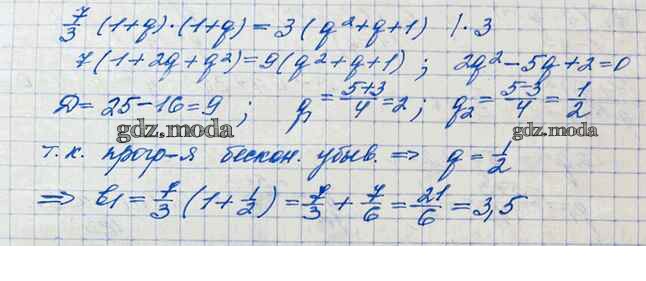 7/3 (1+q)·(1+q) = 3(q²+q+1) |·3
7(1+2q+q²)=9(q²+q+1); 2q²-5q+2=0
Д=25-16=9; q₁=(5+3)/4=2; q₂=(5-3)/4=1/2
gdz.moda gdz.moda
т.к. прогр-я бескон. убыв. => q=1/2
=> b₁=7/3(1+1/2)=7/3+7/6=21/6=3,5